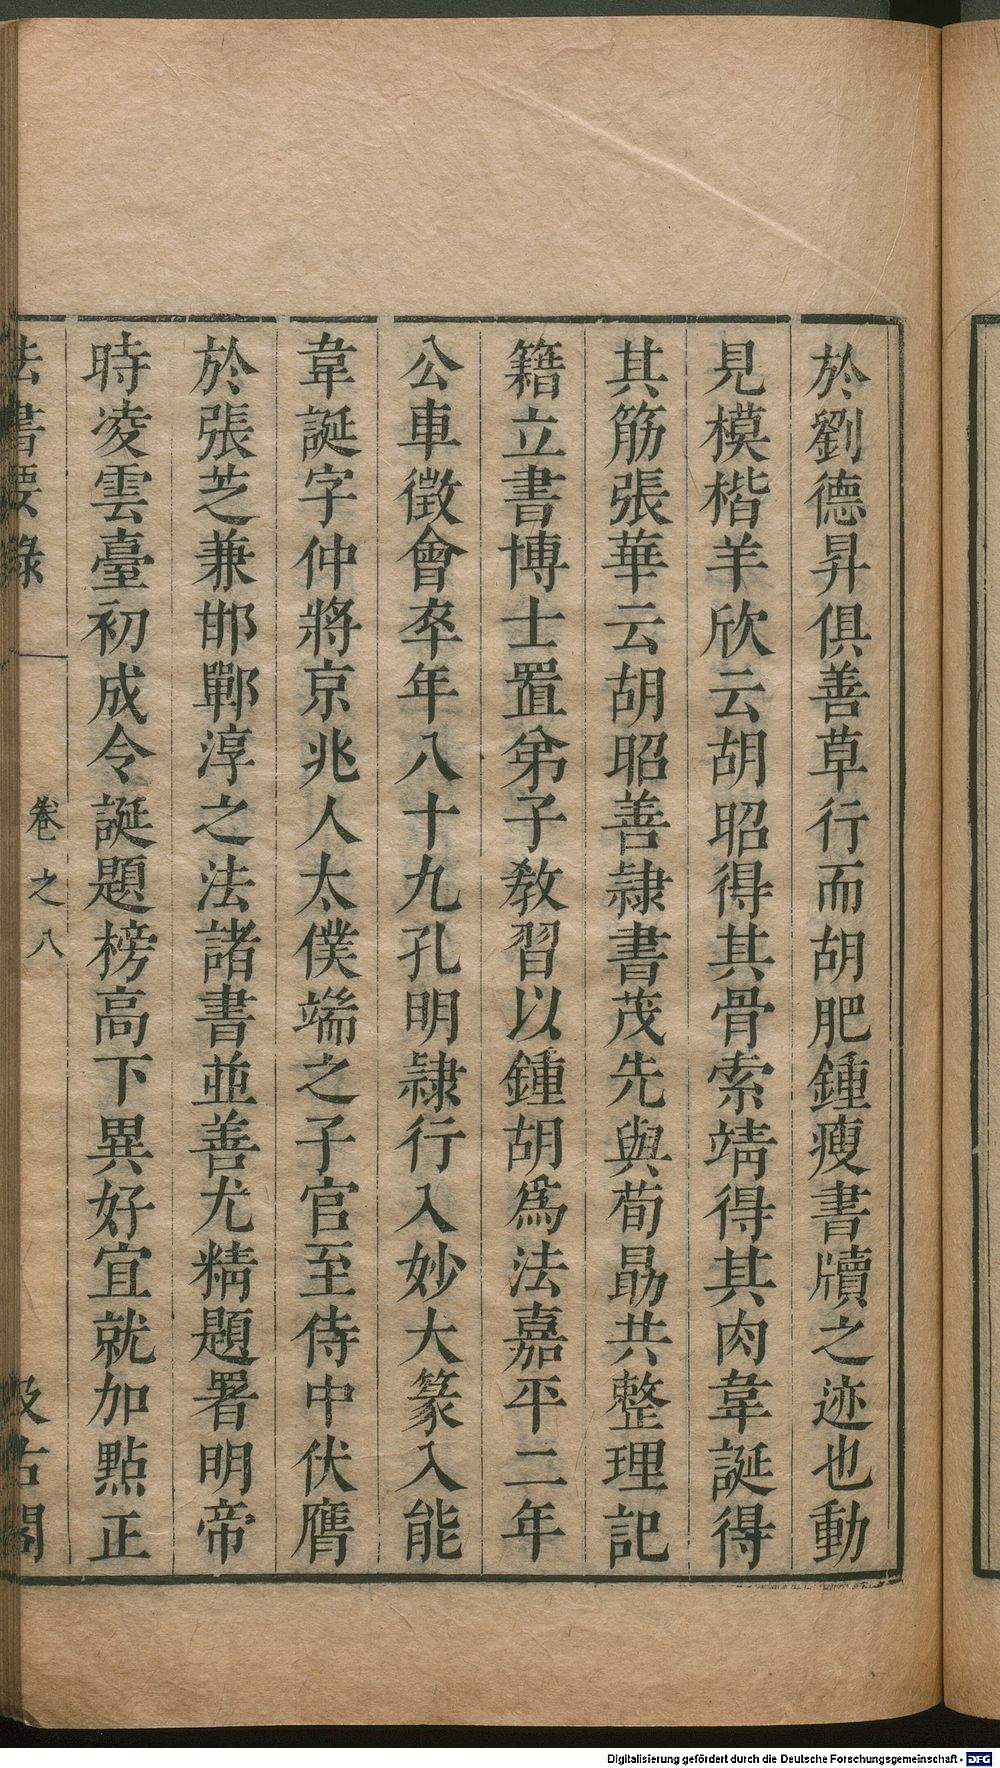 於劉德昇俱善草行而胡肥鍾瘦書牘之迹也動
見模楷羊欣云胡昭得其骨索靖得其肉韋誕得
其筋張華云胡昭善隷書茂先與荀勗共整理記
籍立書博士置弟子教習以鍾胡爲法嘉平二年
公車徵會卒年八十九孔明隷行入妙大篆入能
韋誕字仲將京兆人太僕端之子官至侍中伏膺
於張芝兼邯鄲淳之法諸書並善尤精題署明帝
時凌雲臺初成令誕題榜高下異好宜就加點正
法書要錄 卷之八 汲古閣
Digitalisierung gefördert durch die Deutsche Forschungsgemeinschaft - DFG